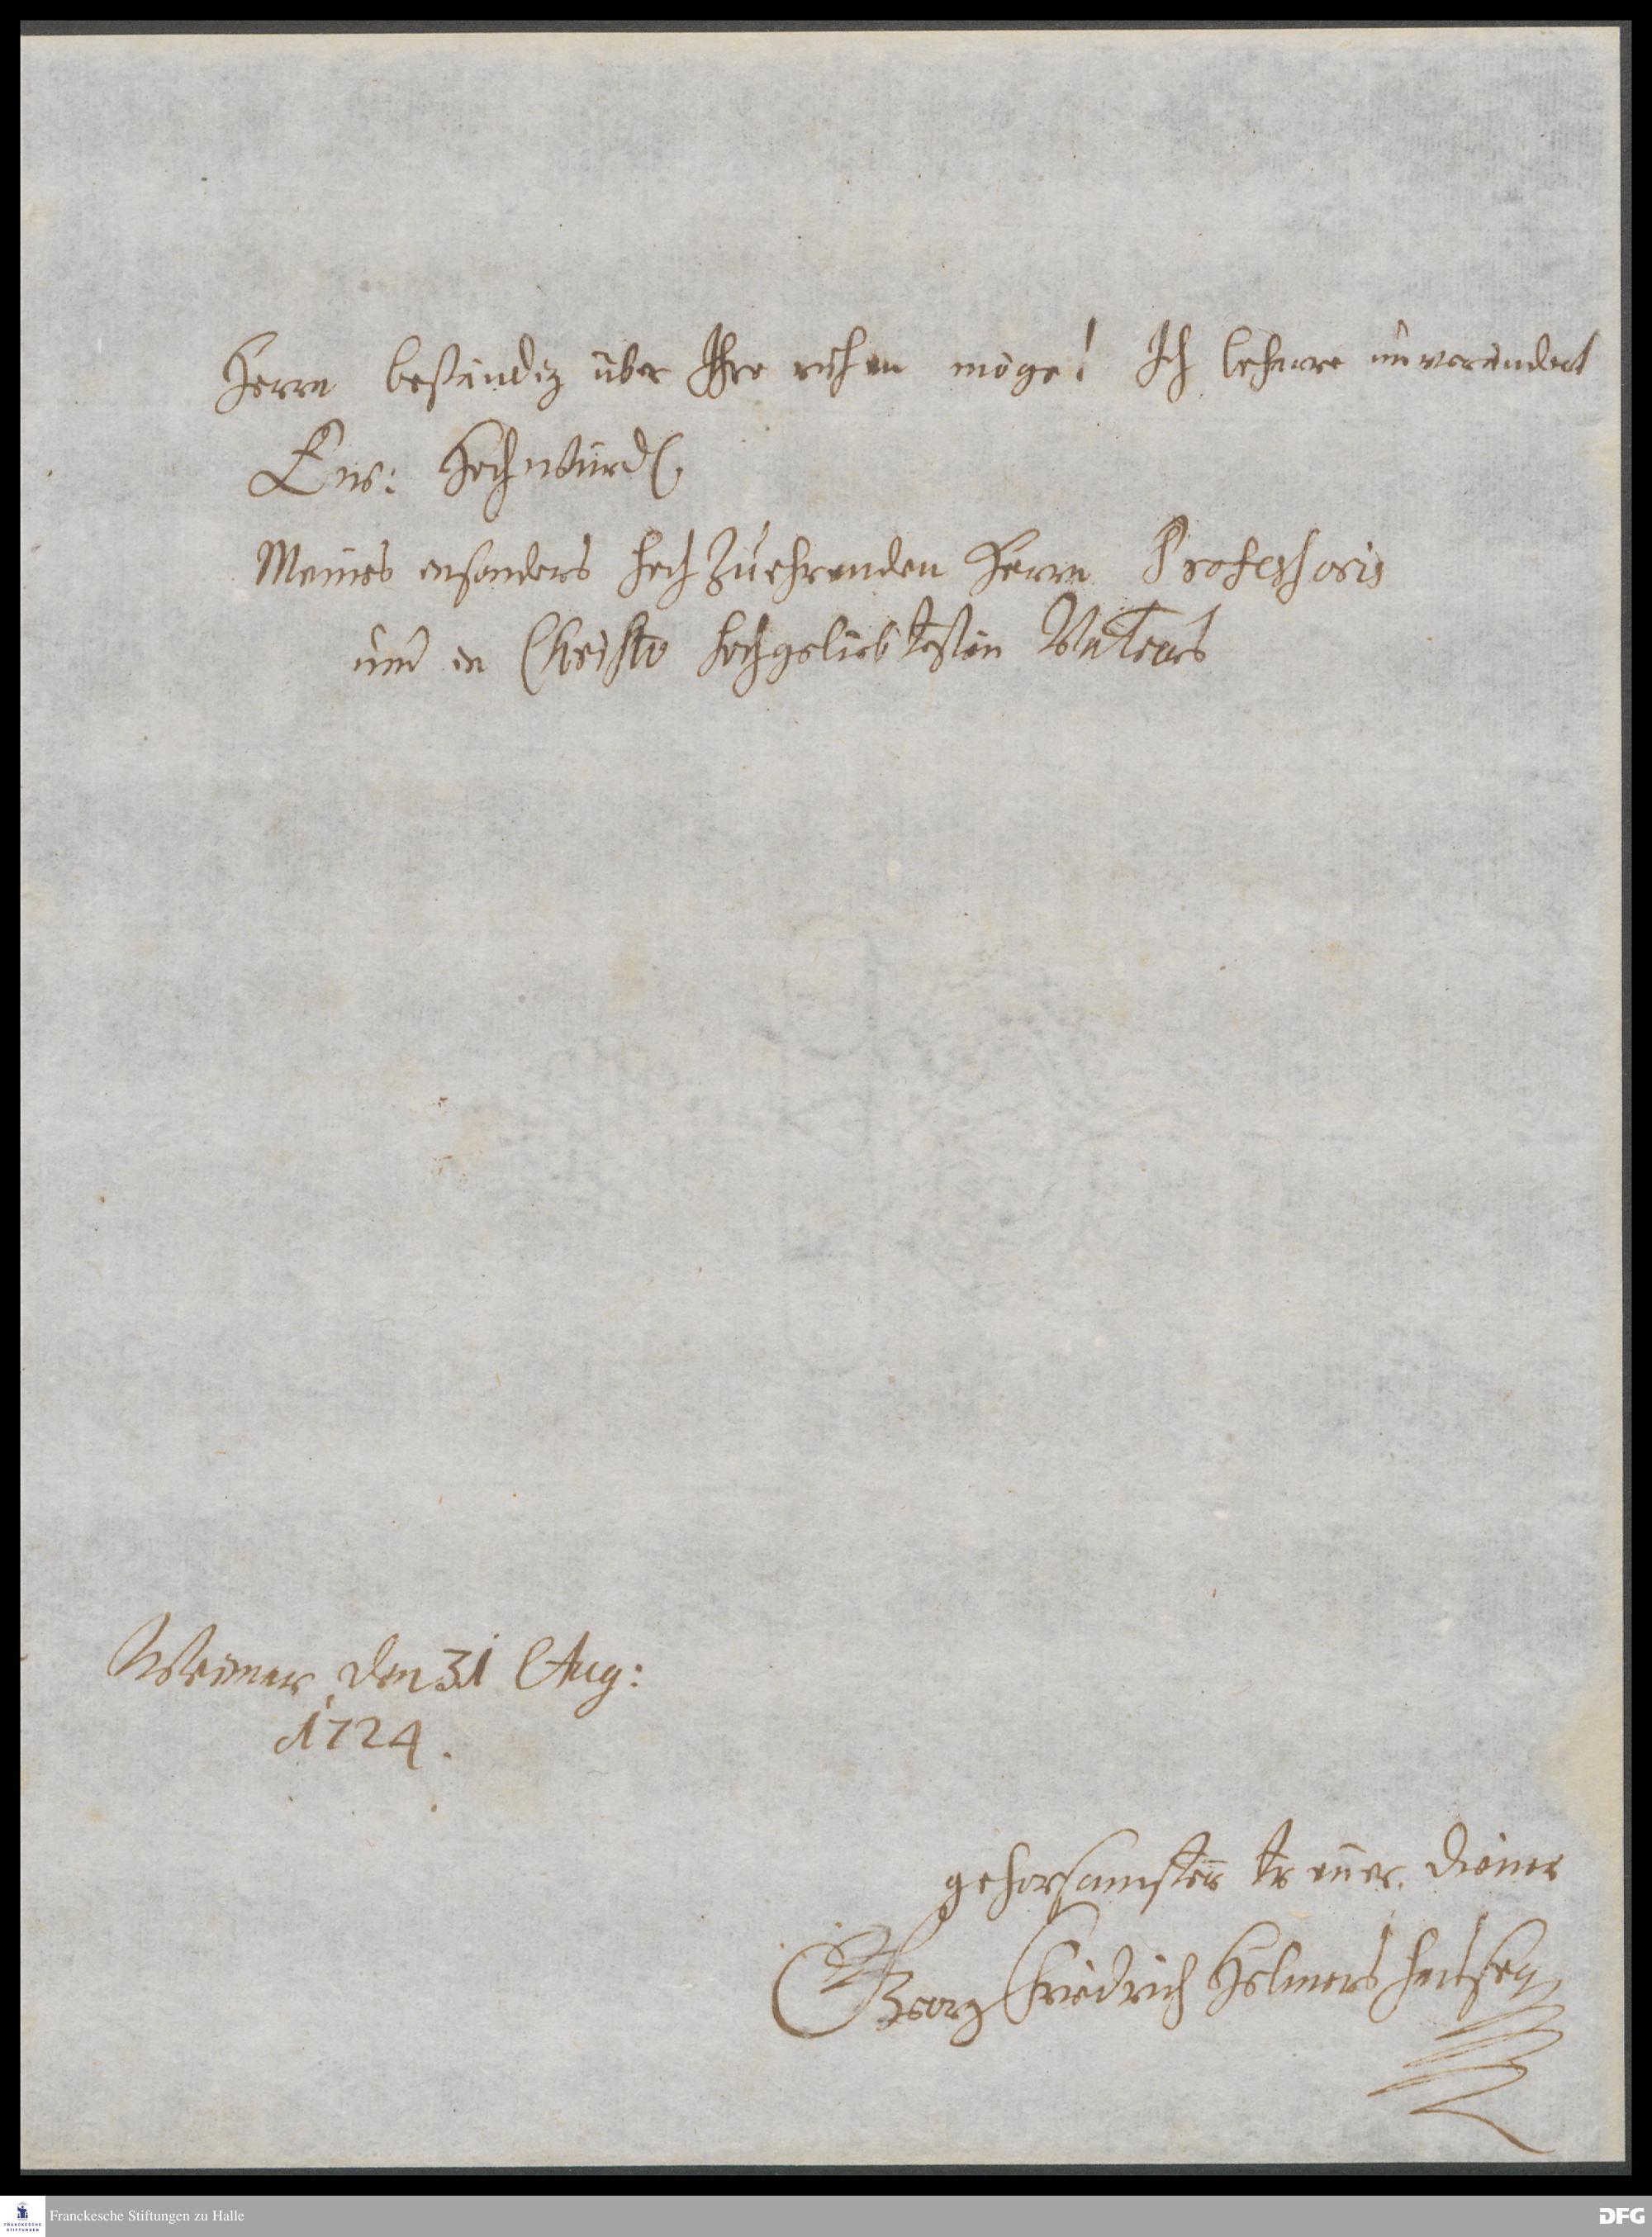 Herrn beständig über Ihre ruhen möge! Ich beharre unverändert
Ew: Hochwürd.
Meines insonders hochzuehrenden Herrn Professoris
und in Christo hochgeliebtesten Vaters
Weimar, den 31 Aug:
1724.
gehorsamster treuer. Diener
Georg Friedrich Helmershausen
FRANCKESCHE
STIFTUNGEN
Franckesche Stiftungen zu Halle
DFG